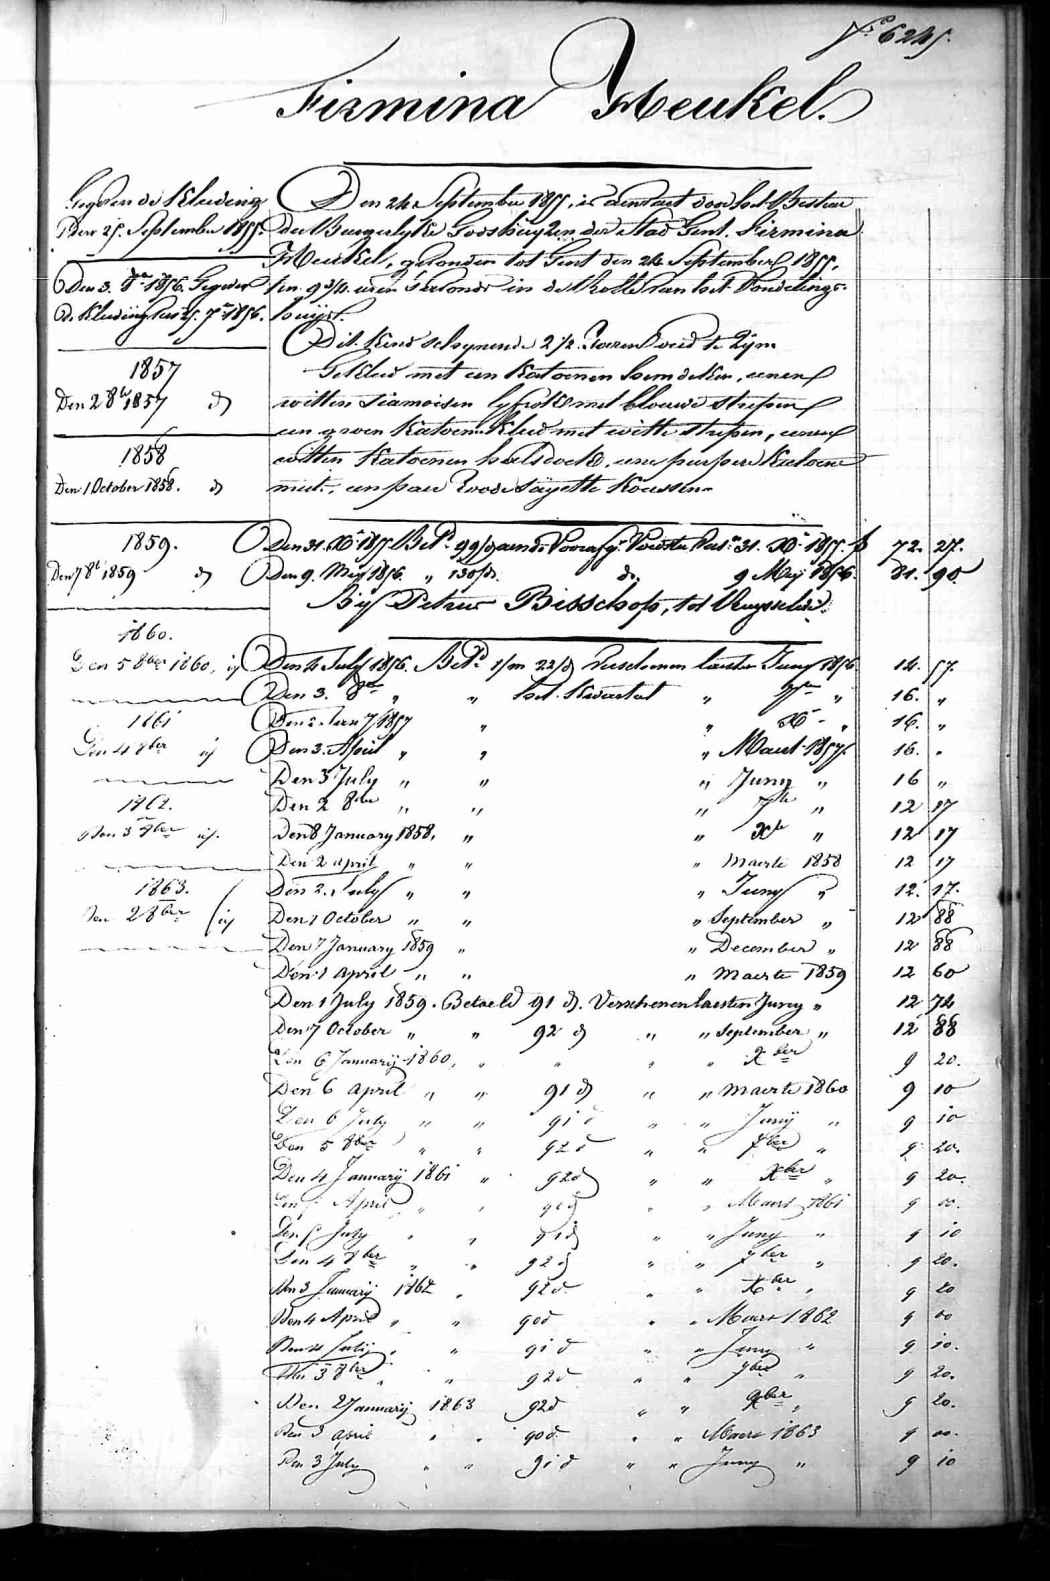 N° 6245.
Firmina Heukel.
Gegeven de Kleeding
Den 25. September 1855.
Den 3. 8bre 1856. Gegeven
de Kleeding 7bre 1856.
1857
Den 2 8bre 1857 d°
1858
Den 1 October 1858. d°
1859.
Den 7 8bre 1859 d°
1860.
Den 5 8ber 1860, id
1861
Den 4 8ber id
1862.
Den 3 8ber id.
1863.
Den 2 8ber id
Den 24 September 1855, is aenvaert door het Bestuer
der Burgerlyke Godshuyzen der Stad Gent. Firmina
Heukel, gevonden tot Gent den 24 September 1855,
ten 9 3/4 uren s'avonds in de Rolle van het Vondelings-
huys.
Dit kind schynende 2 1/2 Jaeren oud te zyn
Gekleed met een katoenen hemdeken, eenen
witten siamoisen lyfrok met blauwe strepen
een groen katoenen kleed met witte strepen, eenen
witten katoenen halsdoek, eene purpere katoene
muts, een paer roode sayette koussen.
Den 31. Xbre 1855 Bet. 99 1855. f 72. 27.
Den 9. Mey 1856. " 130 d. d° 9 Mey 1856. 81. 90.
By Petrus Bisschop, tot
Den 4 July 1856. Bet. 1/m 22/d Verschenen laesten Juny 1856 14. 57.
Den 3. 8bre " " het Kwartael " 7bre " 16. "
Den 2. Jany 1857 " " Xbre " 16. "
Den 3. April " " " Maert 1857. 16. "
Den 3 July " " " Juny " 16 "
Den 2 8bre " " " 7bre " 12 17
Den 8 January 1858, " " Xbre " 12 17
Den 2 april " " " Maerte 1858 12 17
Den 2. July " " " Juny " 12. 17.
Den 1 October " " " September " 12 88
Den 7 January 1859 " " December " 12 88
Den 1 april " " " Maerte 1859 12 60
Den 1 July 1859. Betaeld 91 d. Verschenen laesten Juny " 12 74
Den 7 October " " 92 d " " September " 12 88
Den 6 January 1860, " " " " Xber 9 20.
Den 6 april " " 91 d " " Maerte 1860 9 10
Den 6 July " " 91 d " " Juny " 9 10
Den 5 8ber " " 92 d " " 7ber " 9 20.
Den 4 January 1861 " 92 d " " Xber " 9 20.
Den April " " 90 d " " Maert 1861 9 00.
Den 5 July " " 91 d " " Juny " 9 10
Den 4 8ber " " 92 d " " 7ber " 9 20.
Den 3 January 1862 " 92 d. " " Xber " 9 20
Den 4 April " " 90 d " " Maert 1862 9 00
Den 4 July " " 91 d " " Juny " 9 10.
Den 3 8ber " " 92 d " " 7ber " 9 20.
Den 2 January 1863 92 d " " Xber " 9 20.
Den 3 april " " 90 d. " " Maert 1863 9 00.
Den 3 July " " 91 d " " Juny " 9 10